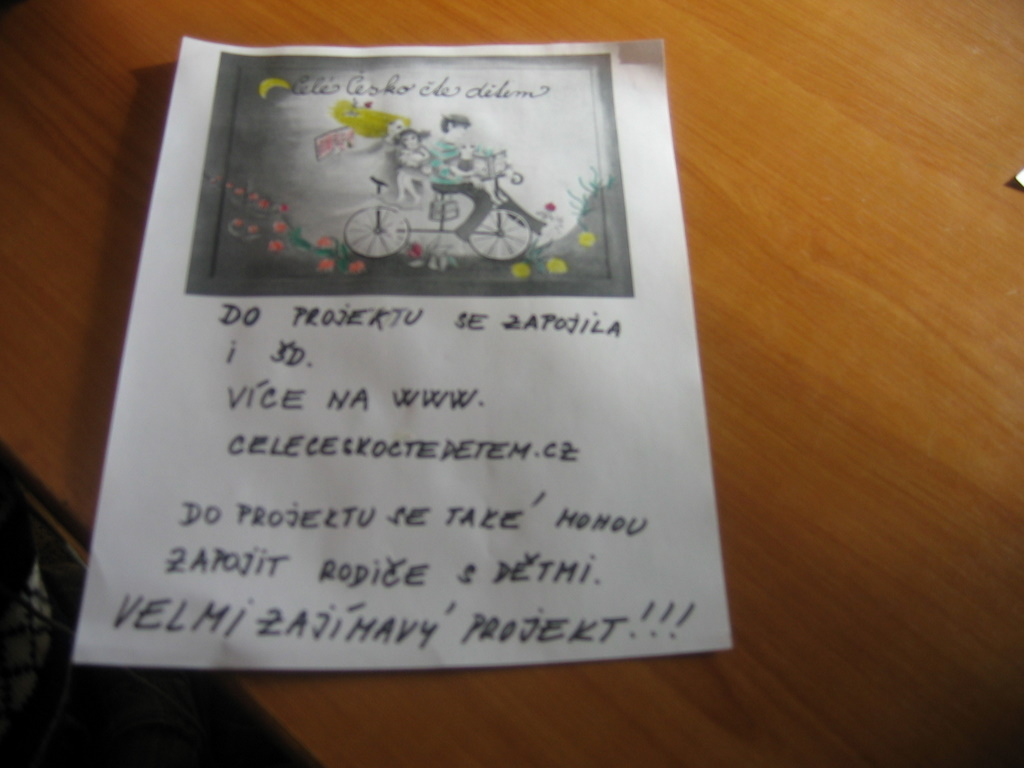 Celé Česko čte dětem
DO PROJEKTU SE ZAPOJILA
i ŠD.
VÍCE NA WWW.
CELECESKOCTEDETEM.CZ
DO PROJEKTU SE TAKÉ MOHOU
ZAPOJIT RODIČE S DĚTMI.
VELMI ZAJÍMAVÝ PROJEKT!!!